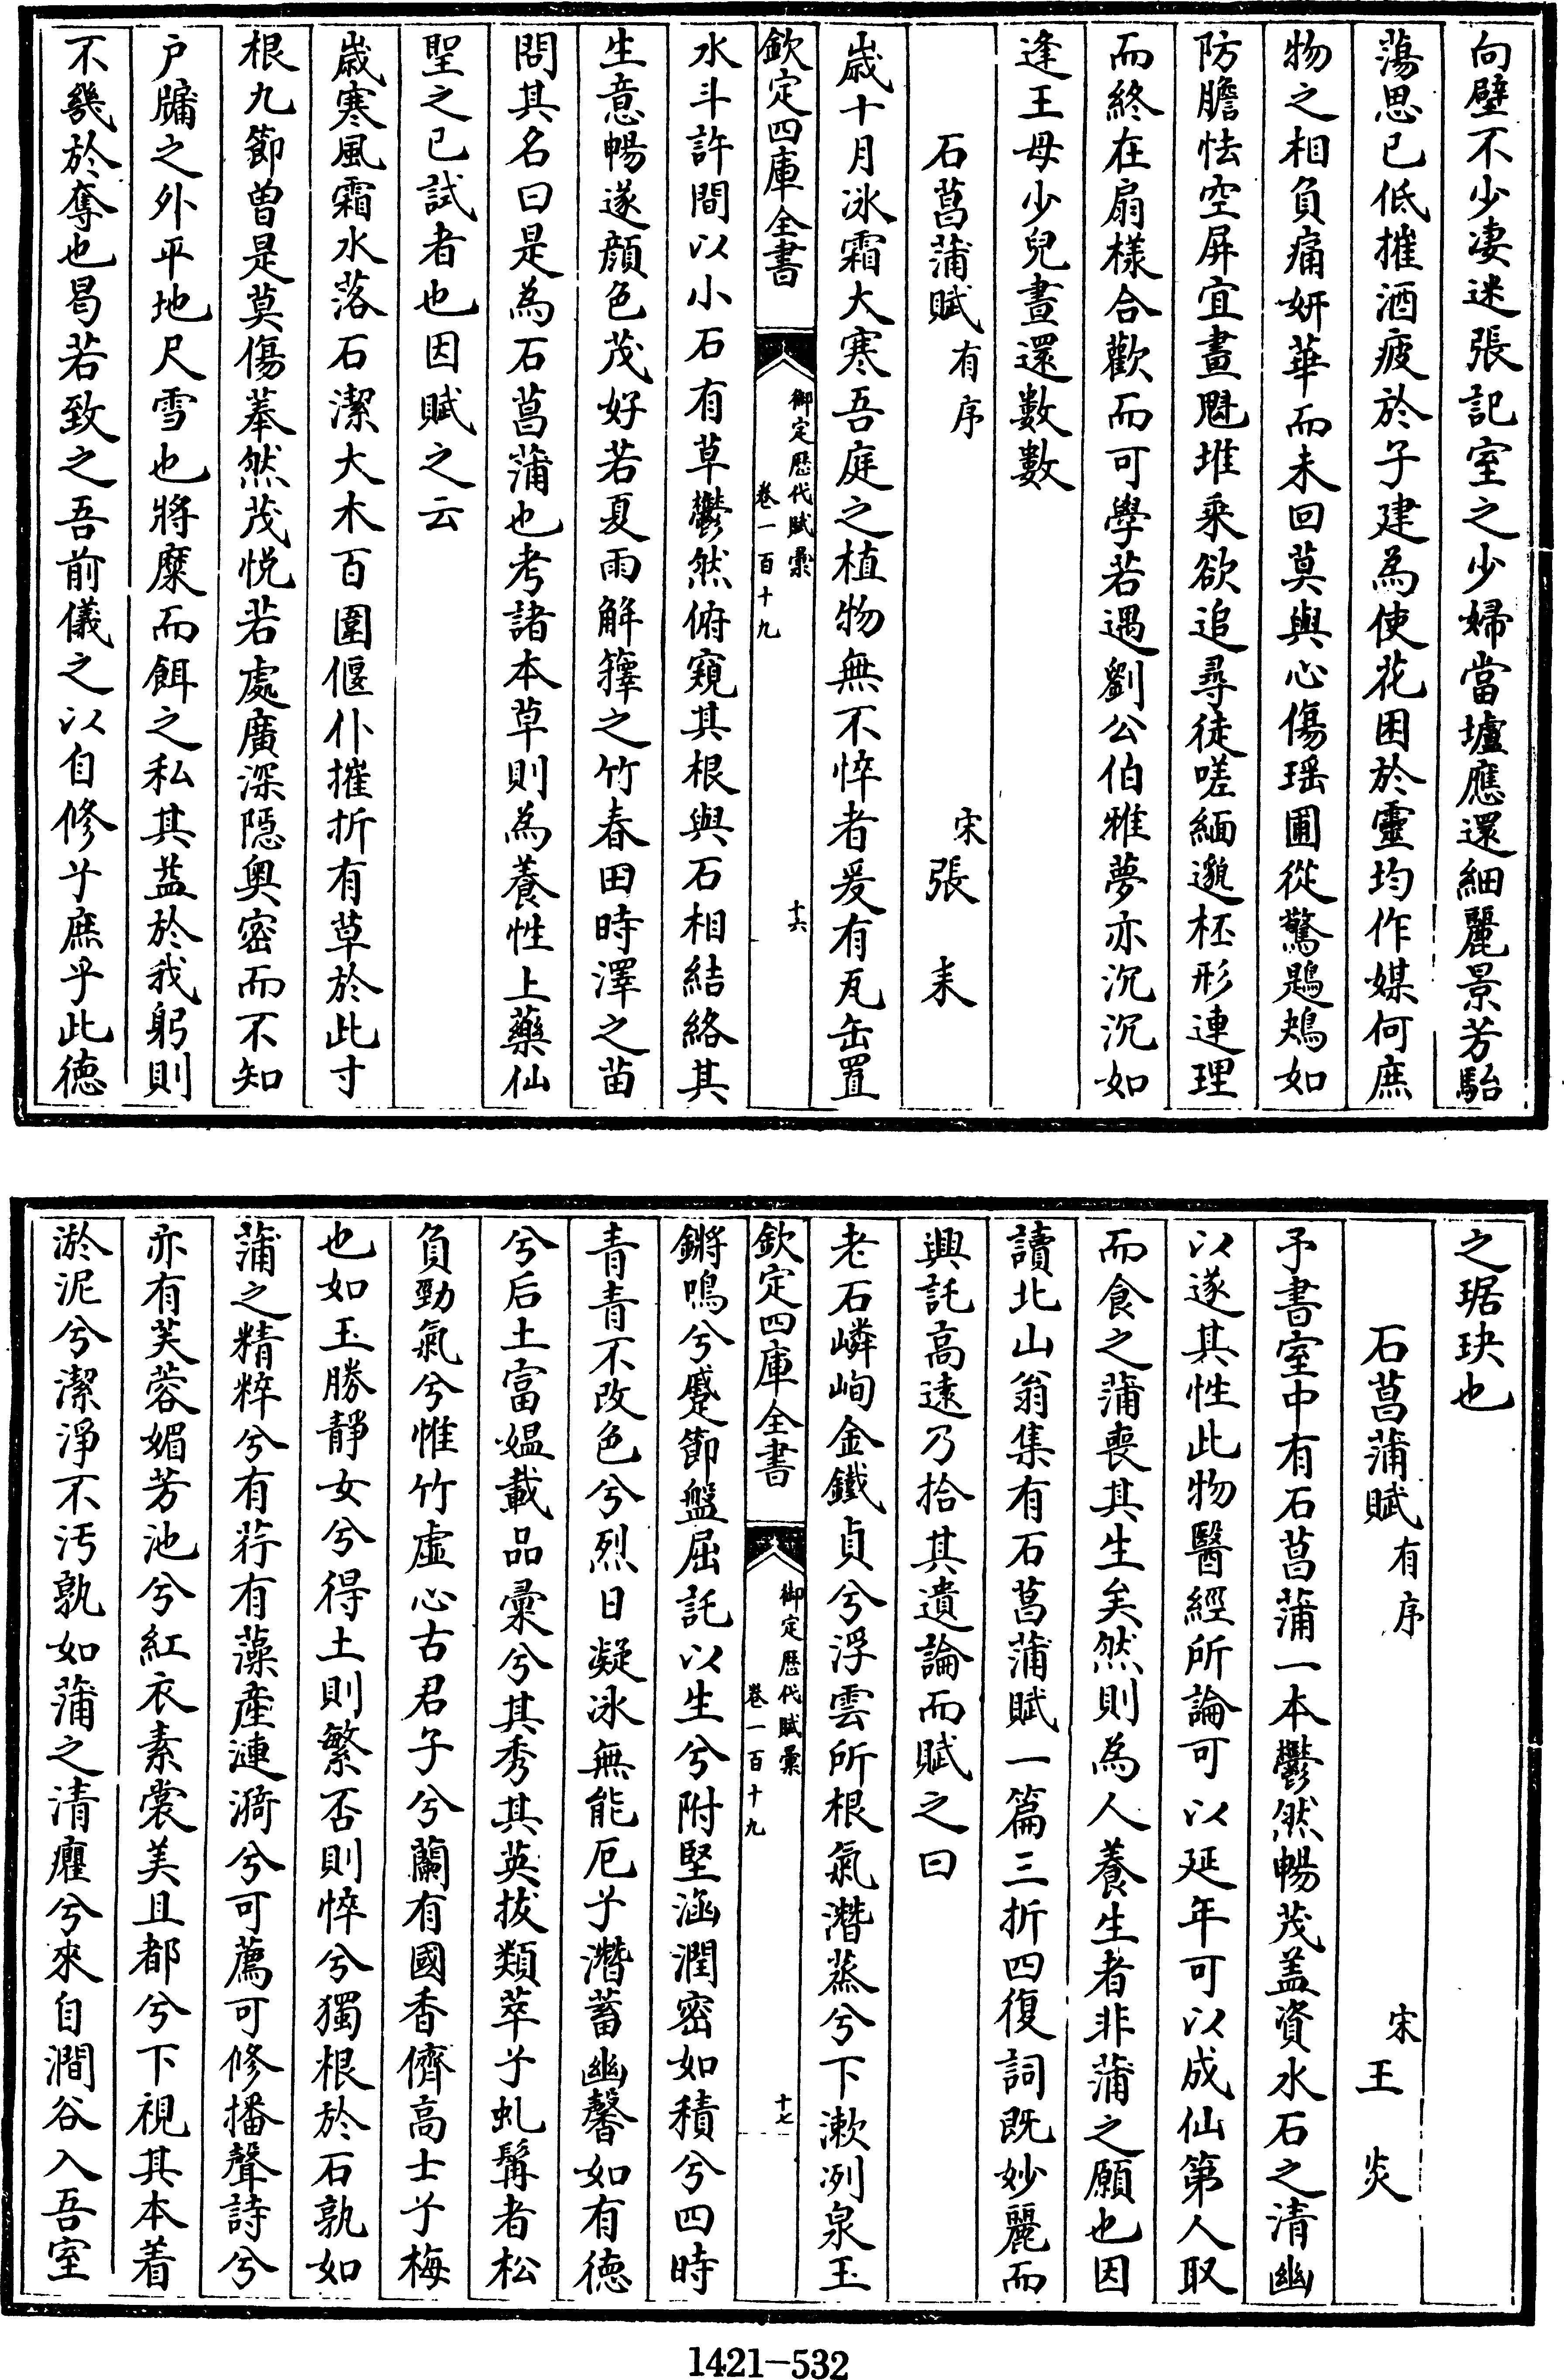 向壁不少凄迷張記室之少婦當壚應還細麗景芳駘
蕩思已低摧酒疲於子建為使花困於靈均作媒何庶
物之相負痛妍華而未回莫與心傷瑶圃從驚鶗鴂如
防膽怯空屏宜畫魁堆乘欲追尋徒嗟緬邈柸形連理
而終在扇樣合歡而可學若遇劉公伯雅夢亦沉沉如
逢王母少兒晝還數數
石菖蒲賦有序 宋張耒
歳十月冰霜大寒吾庭之植物無不悴者爰有瓦缶置
欽定四庫全書 御定歷代賦彙 卷一百十九 十六
水斗許間以小石有草鬱然俯窺其根與石相結絡其
生意暢遂顔色茂好若夏雨解籜之竹春田時澤之苗
問其名曰是為石菖蒲也考諸本草則為養性上藥仙
聖之已試者也因賦之云
歳寒風霜水落石潔大木百圍偃仆摧折有草於此寸
根九節曾是莫傷菶然茂悦若處廣深隱奥密而不知
户牖之外平地尺雪也將糜而餌之私其益於我躬則
不幾於奪也曷若致之吾前儀之以自修兮庶乎此徳
之琚玦也
石菖蒲賦有序 宋王炎
予書室中有石菖蒲一本鬱然暢茂盖資水石之清幽
以遂其性此物醫經所論可以延年可以成仙第人取
而食之蒲喪其生矣然則為人養生者非蒲之願也因
讀北山翁集有石菖蒲賦一篇三折四復詞既妙麗而
興託高逺乃拾其遺論而賦之曰
老石嶙峋金鐵貞兮浮雲所根氣潛蒸兮下漱冽泉玉
欽定四庫全書 御定歷代賦彙 卷一百十九 十七
鏘鳴兮蹙節盤屈託以生兮附堅涵潤密如積兮四時
青青不改色兮烈日凝冰無能厄兮潛蓄幽馨如有徳
兮后土富媪載品彙兮其秀其英拔類萃兮虬髯者松
負勁氣兮惟竹虚心古君子兮蘭有國香儕高士兮梅
也如玉勝靜女兮得土則繁否則悴兮獨根於石孰如
蒲之精粹兮有荇有藻產漣漪兮可薦可修播聲詩兮
亦有芙蓉媚芳池兮紅衣素裳美且都兮下視其本着
淤泥兮潔淨不汚孰如蒲之清癯兮來自澗谷入吾室
1421-532